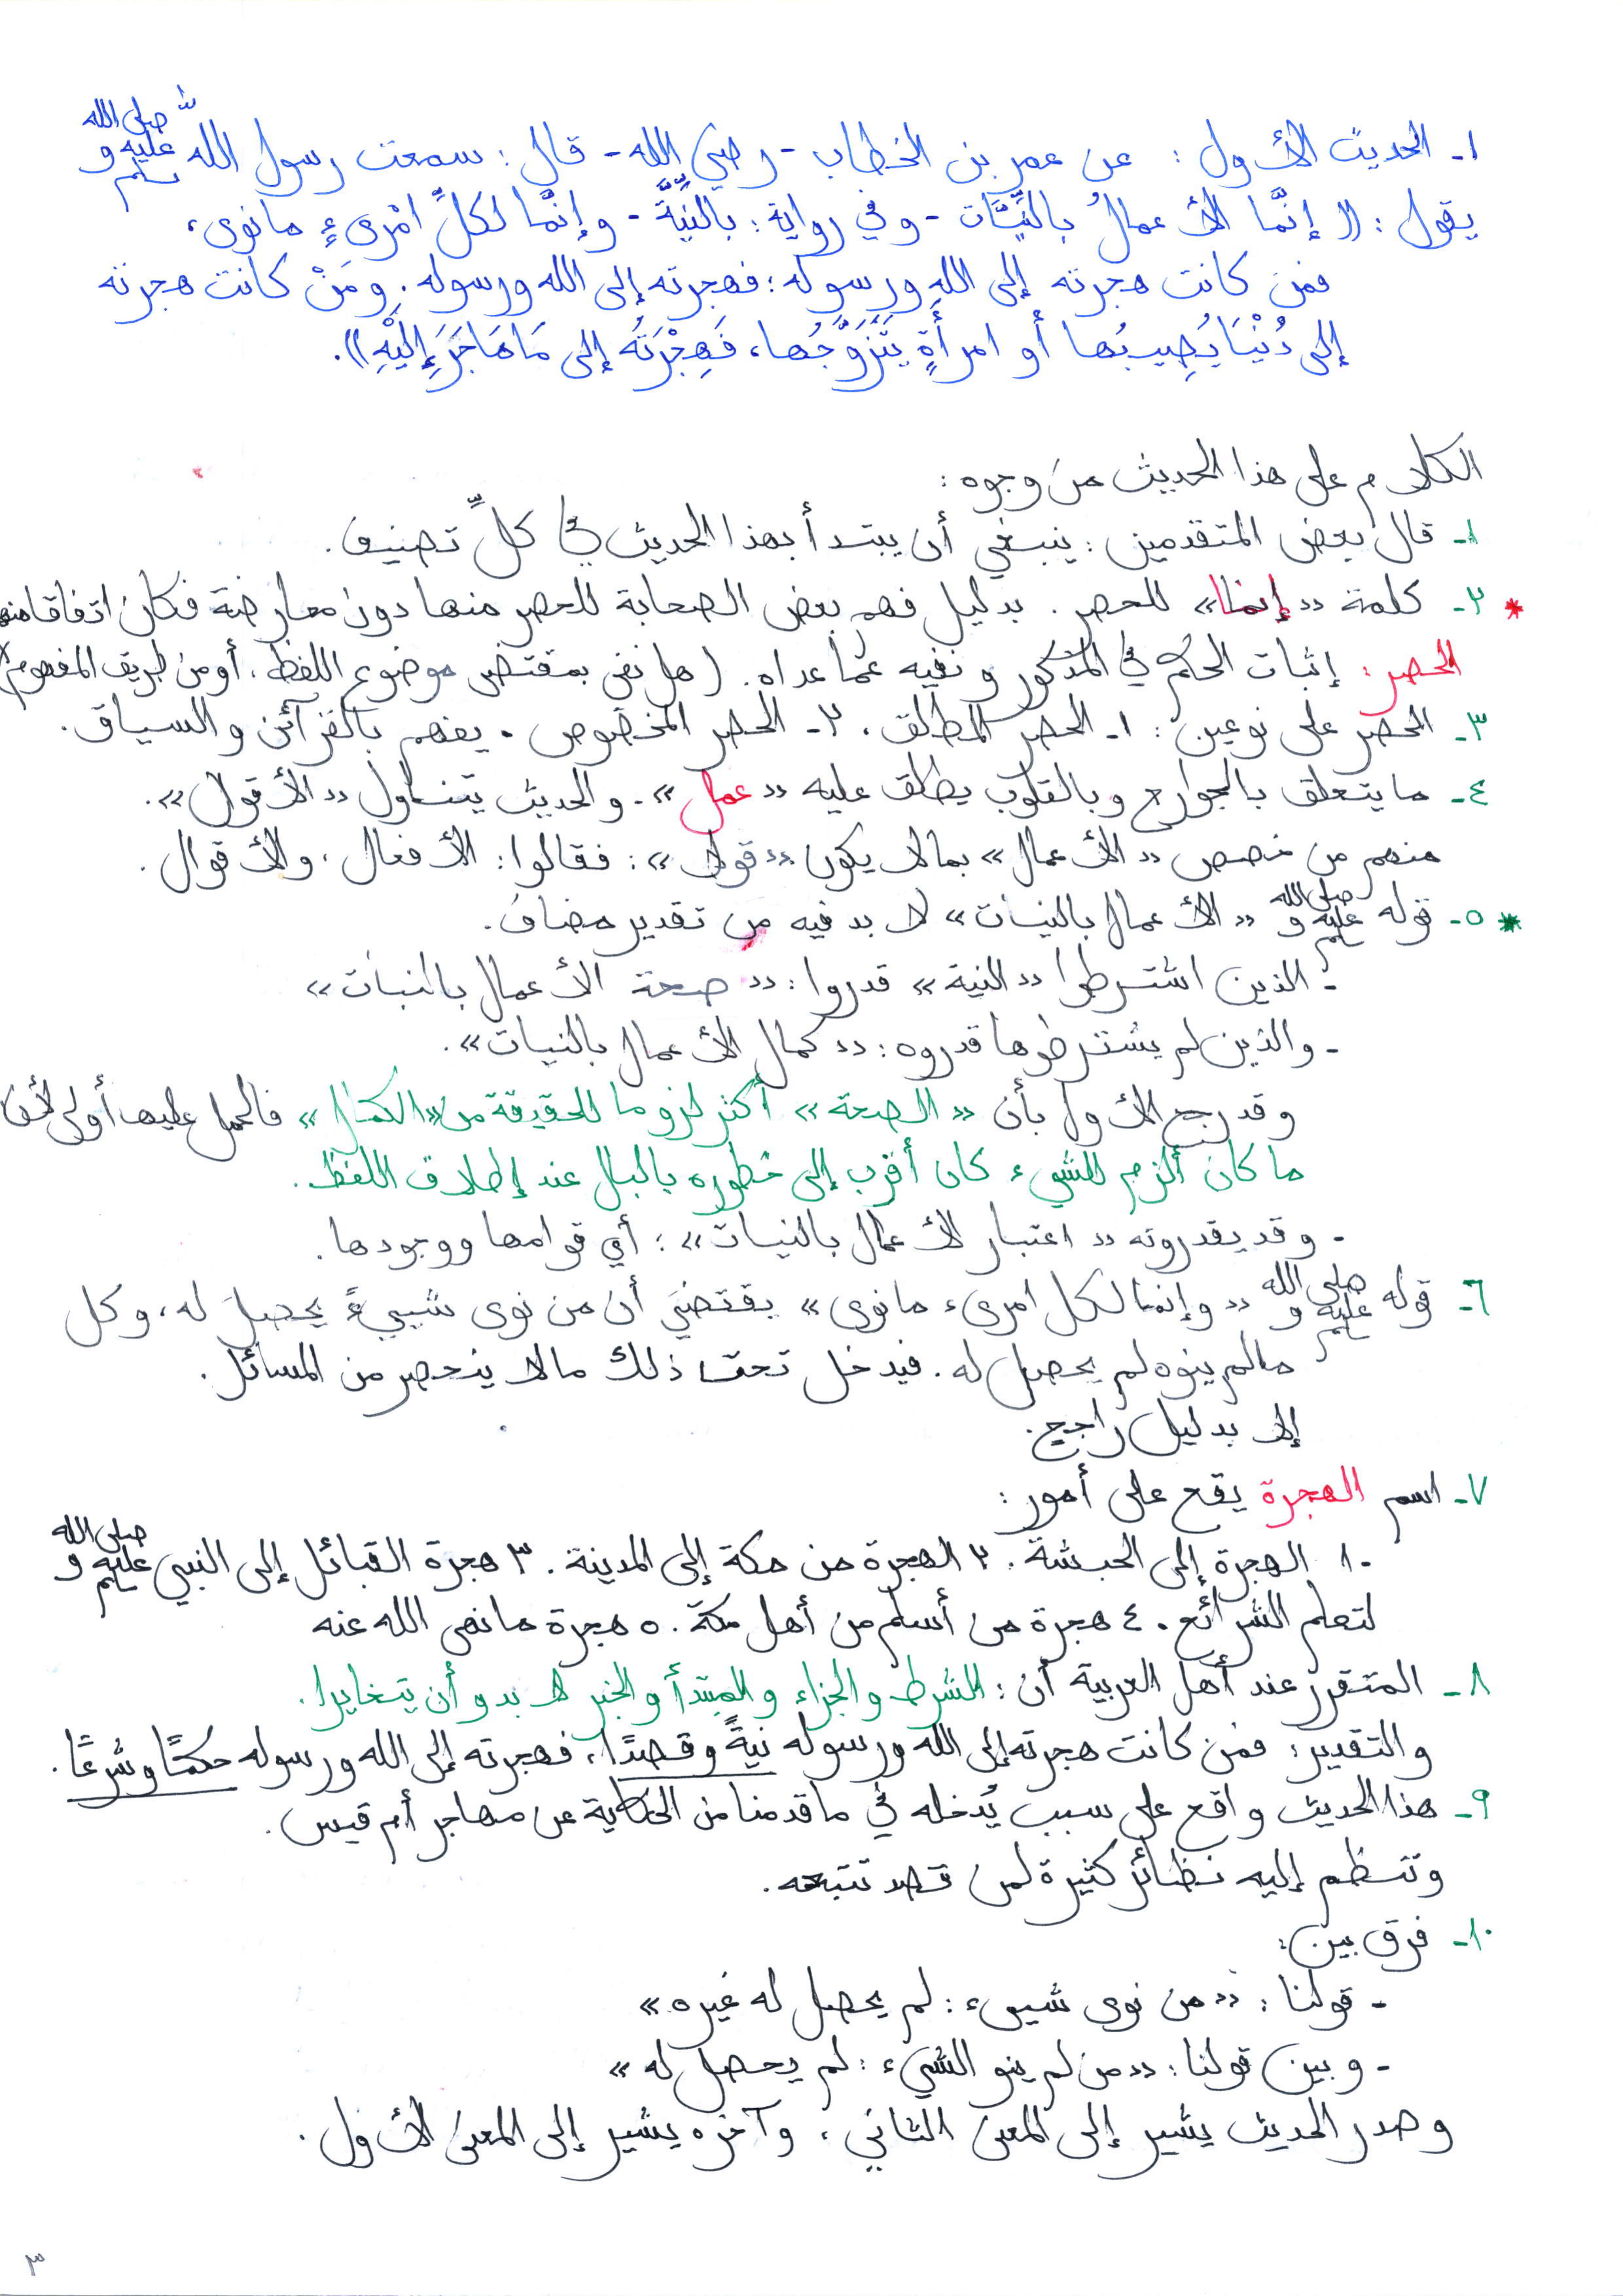 ١- الحديث الأول: عن عمر بن الخطاب - رضي الله - قال: سمعت رسول الله صلى الله عليه وسلم
يقول: (( إنَّما الأعمالُ بالنِّيَّات - وفي رواية: بالنِّيَّة - وإنَّما لكلِّ امْرىءٍ مانوى،
فمن كانت هجرته إلى الله ورسوله؛ فهجرته إلى الله ورسوله. ومَنْ كانت هجرته
إلى دُنْيَا يُصِيبُها أو امرأَةٍ يَتَزَوَّجُها، فَهِجْرَتُه إلى مَا هَاجَرَ إِلَيْهِ )).
الكلام على هذا الحديث من وجوه:
١- قال بعض المتقدمين: ينبغي أن يبتدأ بهذا الحديث في كلِّ تصنيف.
* ٢- كلمة «إنما» للحصر. بدليل فهم بعض الصحابة للحصر منها دون معارضة فكان اتفاقا منهم
الحصر: إثبات الحكم في المذكور ونفيه عمّا عداه. (هل نفي بمقتضى موضوع اللفظ، أو من طريق المفهوم؟)
٣- الحصر على نوعين: ١- الحصر المطلق، ٢- الحصر المخصوص. يفهم بالقرآئن والسياق.
٤- ما يتعلق بالجوارح وبالقلوب يطلق عليه «عمل». والحديث يتناول «الأقوال».
منهم من خصص «الأعمال» بمالا يكون «قولا»: فقالوا: الأفعال، والأقوال.
* ٥- قوله صلى الله عليه وسلم «الأعمال بالنيات» لا بد فيه من تقدير مضاف.
- الذين اشترطوا «النية» قدروا: «صحة الأعمال بالنيات»
- والذين لم يشترطوها قدروه: «كمال الأعمال بالنيات».
وقد رجح الأول بأن «الصحة» أكثر لزوما للحقيقة من «الكمال» فالحمل عليها أولى لأن
ما كان ألزم للشيء كان أقرب إلى خطوره بالبال عند إطلاق اللفظ.
- وقد يقدرونه «اعتبار الأعمال بالنيات»: أي قوامها ووجودها.
٦- قوله صلى الله عليه وسلم «وإنما لكل امرىء مانوى» يقتضي أن من نوى شيىءً يحصل له، وكل
مالم ينوه لم يحصل له. فيدخل تحت ذلك مالا ينحصر من المسائل.
إلا بدليل راجح.
٧- اسم الهجرة يقع على أمور:
١٠ الهجرة إلى الحبشة. ٢ الهجرة من مكة إلى المدينة. ٣ هجرة القبائل إلى النبي صلى الله عليه وسلم
لتعلم الشرائع. ٤ هجرة من أسلم من أهل مكة. ٥ هجرة مانهى الله عنه
٨- المتقرر عند أهل العربية أن: الشرط والجزاء والمبتدأ والخبر لا بد وأن يتغايرا.
والتقدير: فمن كانت هجرته إلى الله ورسوله نيةً وقصدًا، فهجرته إلى الله ورسوله حكمًا وشرعًا.
٩- هذا الحديث واقع على سبب يُدخله في ما قدمنا من الحكاية عن مهاجر أم قيس.
وتنظم إليه نظائر كثيرة لمن قصد تتبعه.
١٠- فرق بين:
- قولنا: «من نوى شيىء: لم يحصل له غيره»
- وبين قولنا: «من لم ينو الشيء: لم يحصل له»
وصدر الحديث يشير إلى المعنى الثاني، وآخره يشير إلى المعنى الأول.
٣